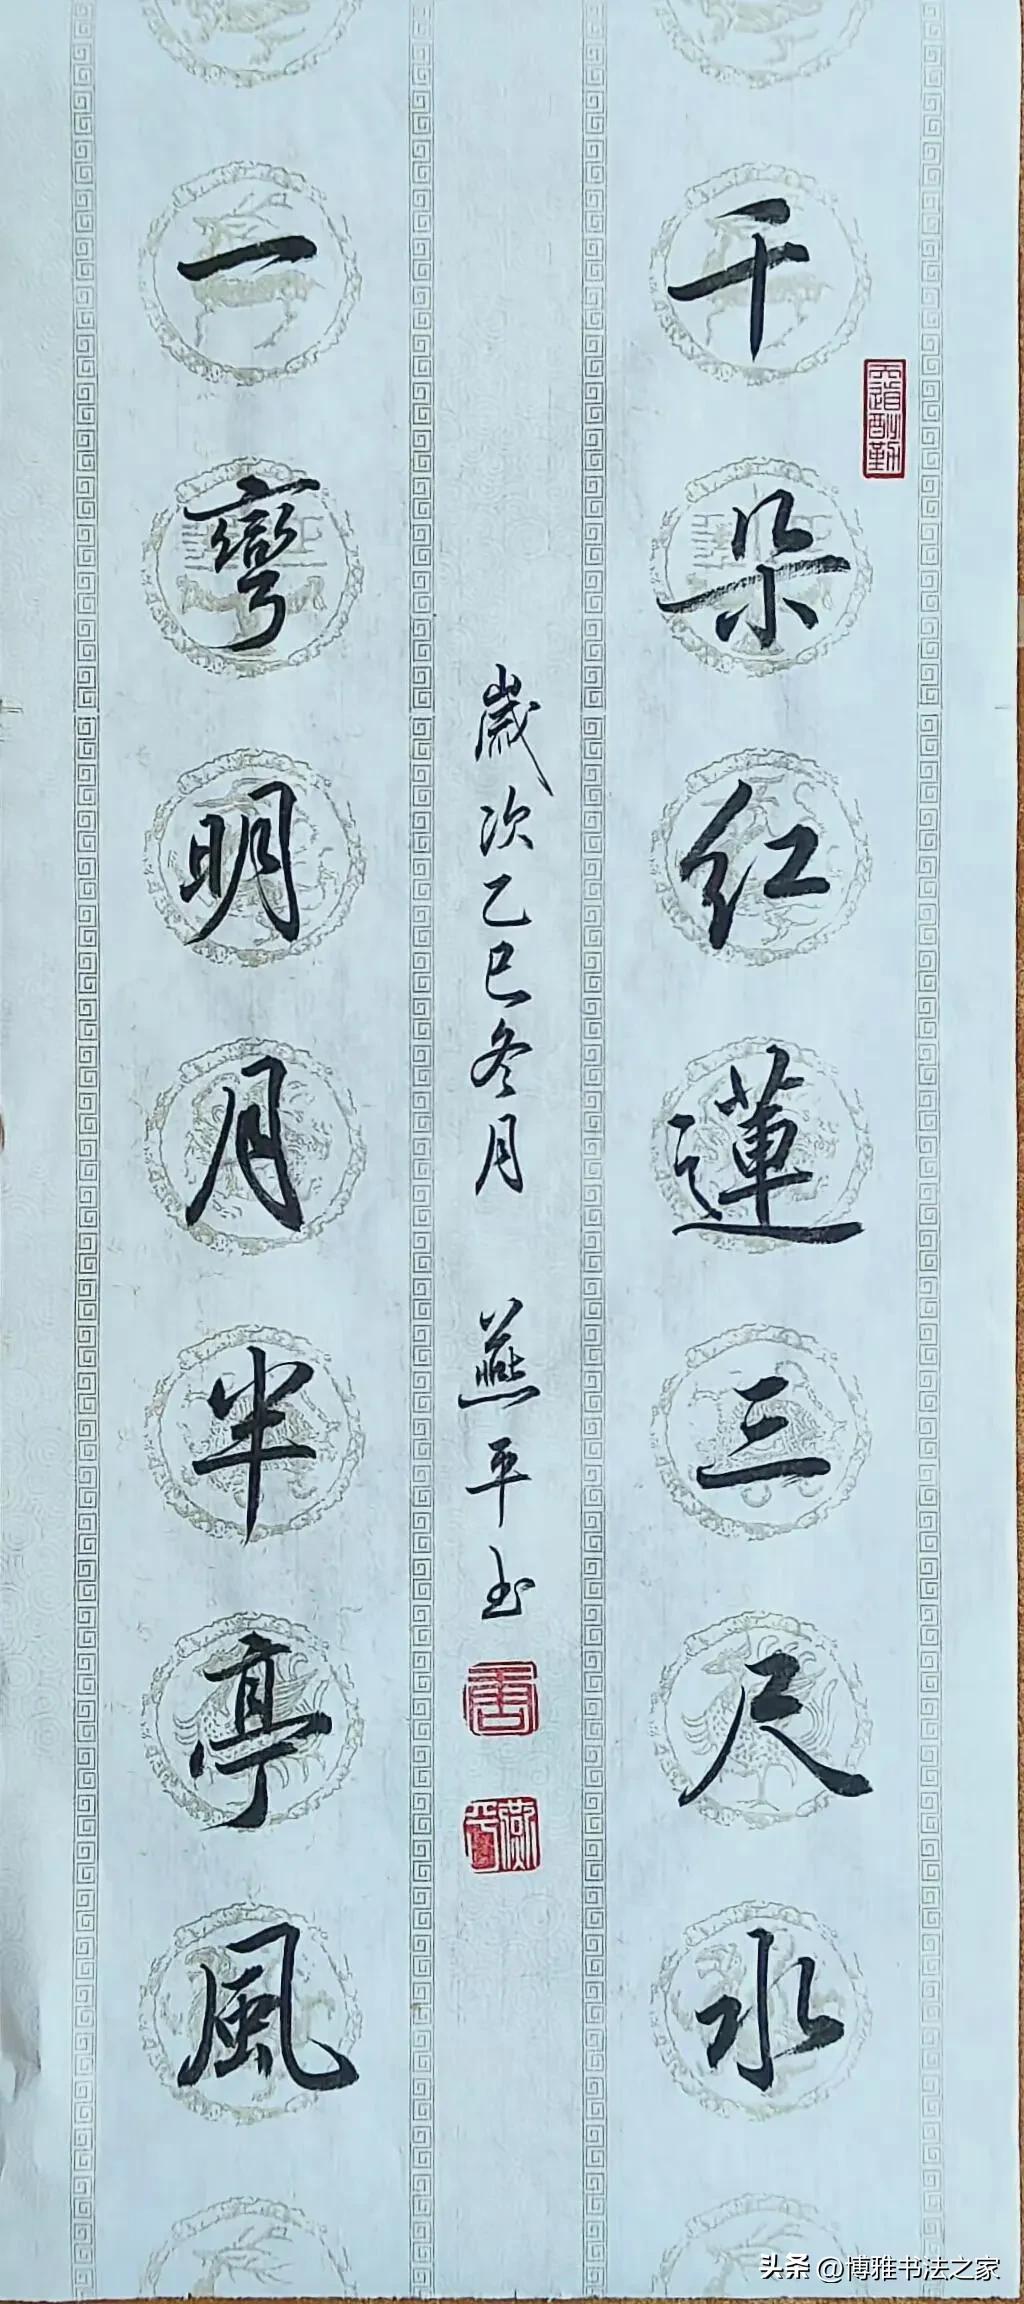 千朵红蓮三尺水
天道酬勤
歲次乙巳冬月 燕平书
燕平
一彎明月半亭風
头条 @博雅书法之家